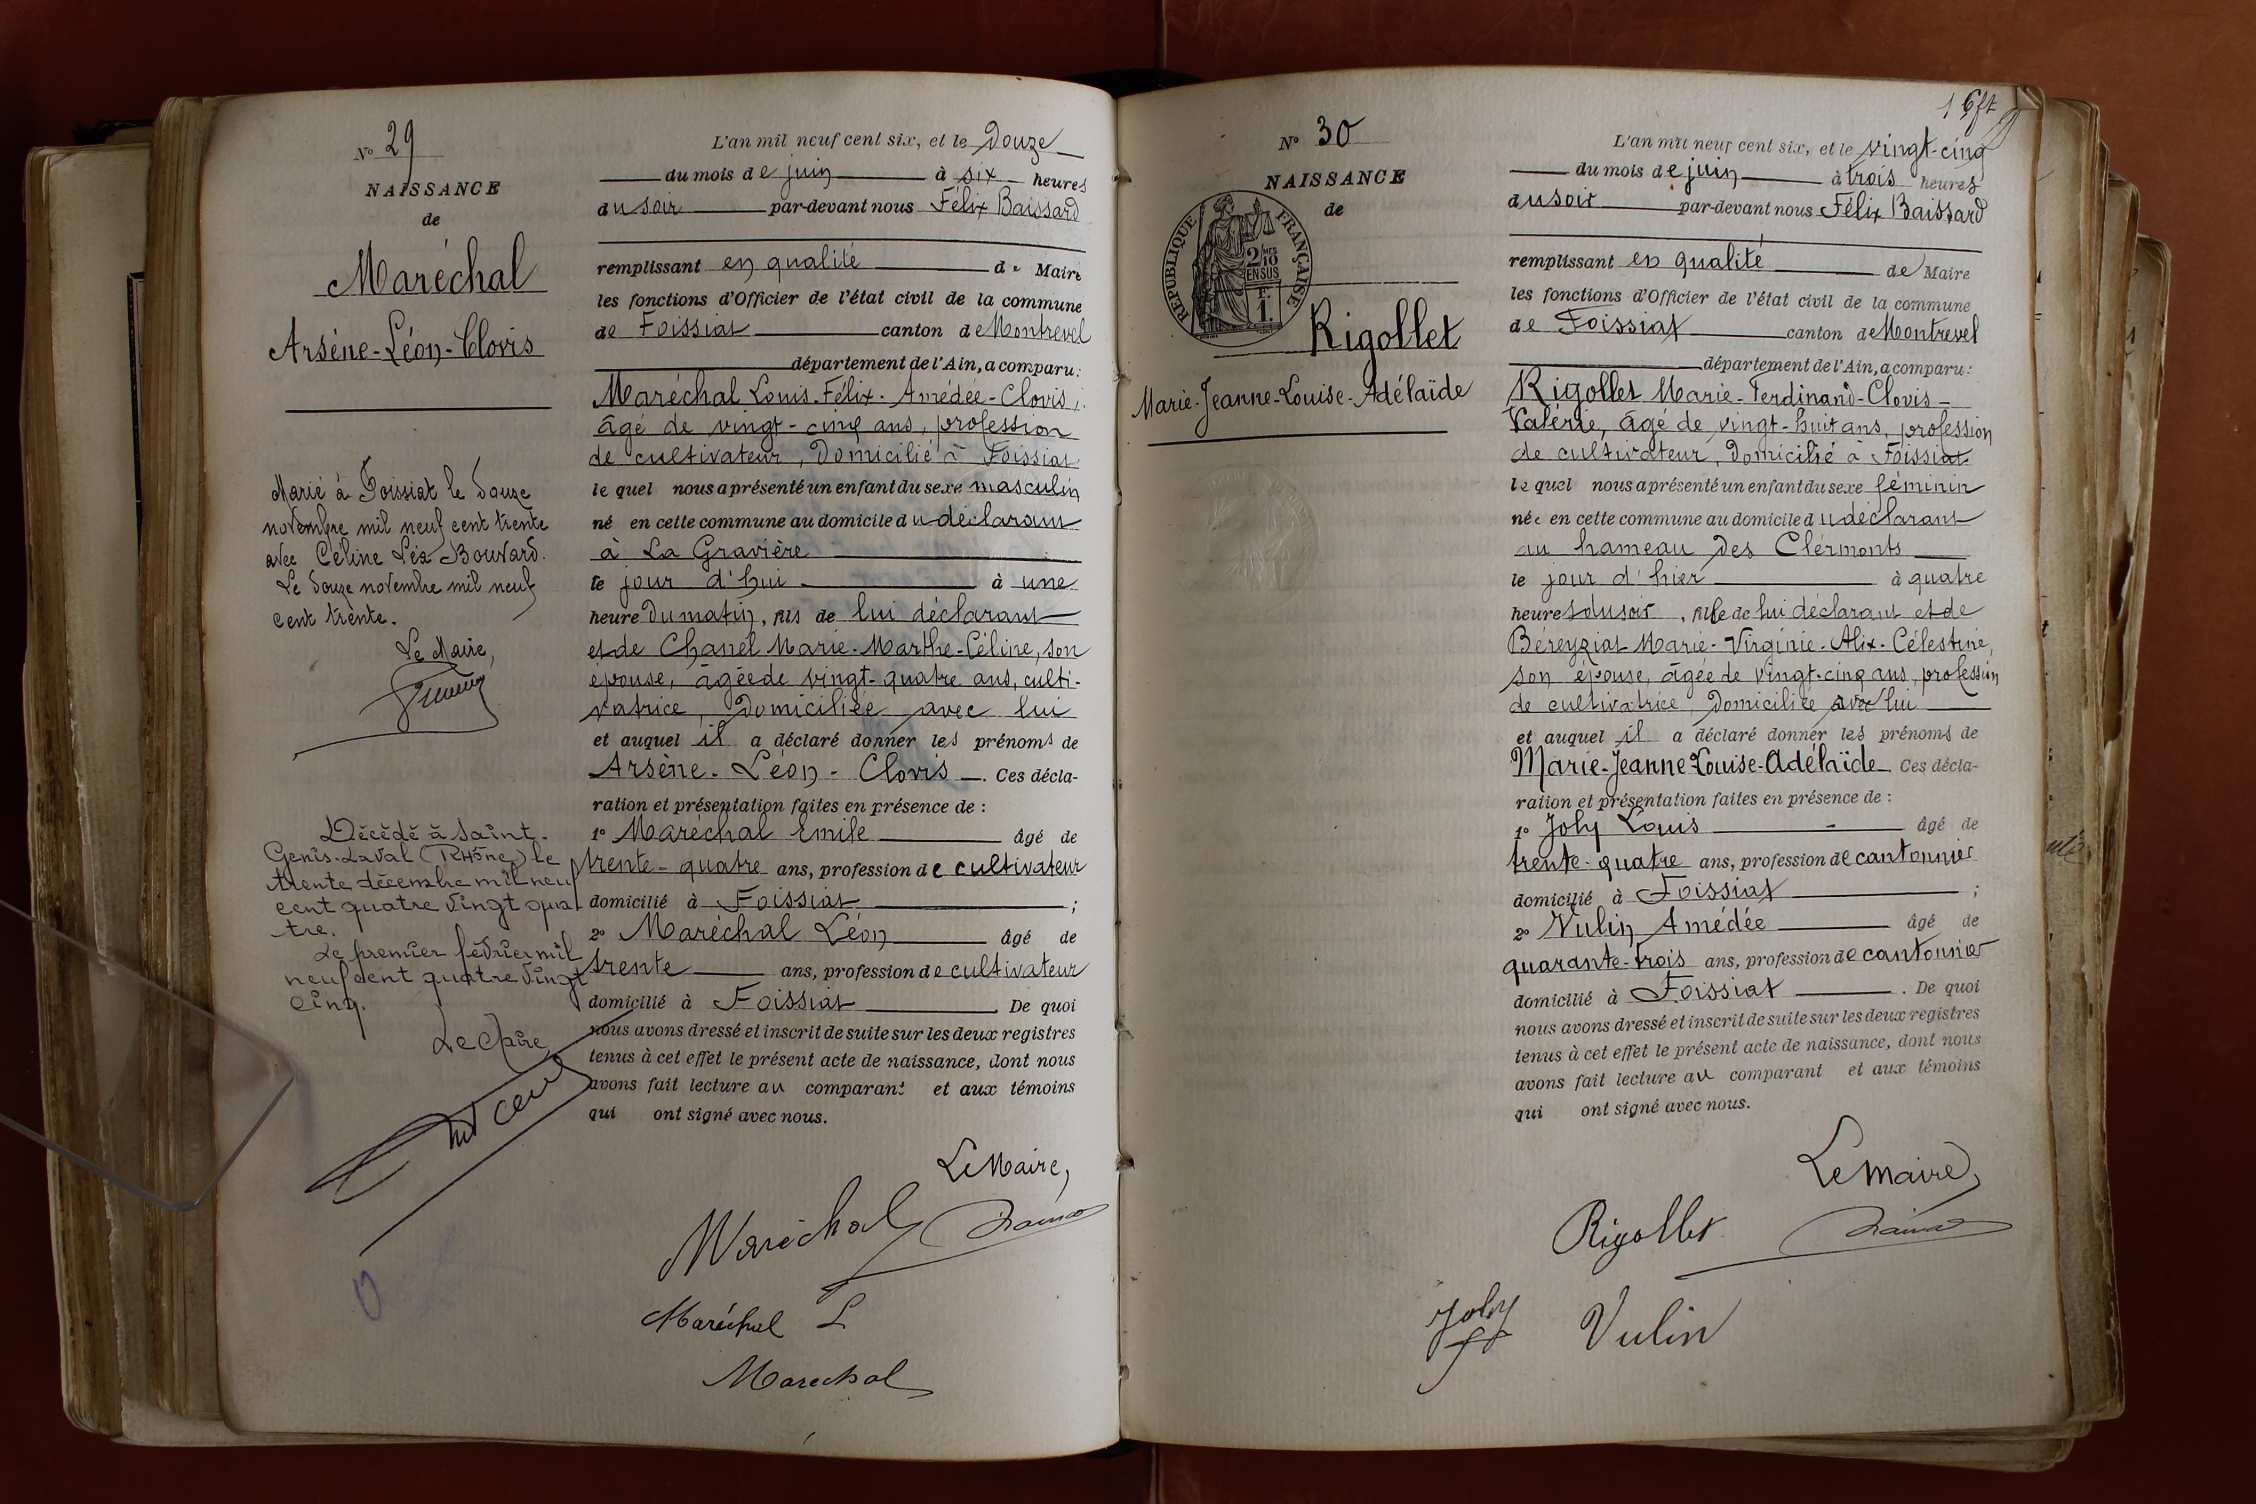 N° 29
NAISSANCE
de
Maréchal
Arsène-Léon-Clovis
Marié à Foissiat le douze
novembre mil neuf cent trente
avec Céline Léa Bouvard.
Le douze novembre mil neuf
cent trente.
Le Maire,
Décédé à Saint-
Genis-Laval (Rhône) le
trente décembre mil neuf
cent quatre vingt qua
tre.
Le premier février mil
neuf cent quatre vingt
cinq.
Le Maire
L'an mil neuf cent six, et le Douze
du mois de juin à six heures
du soir par-devant nous Félix Baissard
remplissant en qualité de Maire
les fonctions d'Officier de l'état civil de la commune
de Foissiat canton de Montrevel
département de l'Ain, a comparu:
Maréchal Louis-Félix-Amédée-Clovis,
âgé de vingt-cinq ans, profession
de cultivateur, Domicilié à Foissiat
le quel nous a présenté un enfant du sexe masculin
né en cette commune au domicile du déclarant
à La Gravière
le jour d'hui à une
heure du matin, fils de lui déclarant
et de Chanel Marie-Marthe-Céline, son
épouse, âgée de vingt-quatre ans, culti-
vatrice, Domiciliée avec lui
et auquel il a déclaré donner les prénoms de
Arsène-Léon-Clovis. Ces décla-
ration et présentation faites en présence de :
1° Maréchal Emile âgé de
trente-quatre ans, profession de cultivateur
domicilié à Foissiat ;
2° Maréchal Léon âgé de
trente ans, profession de cultivateur
domicilié à Foissiat. De quoi
nous avons dressé et inscrit de suite sur les deux registres
tenus à cet effet le présent acte de naissance, dont nous
avons fait lecture au comparant et aux témoins
qui ont signé avec nous.
Le Maire,
Maréchal
Maréchal L
Marechal
16ft
N° 30
NAISSANCE
de
REPUBLIQUE FRANÇAISE
2/10 EN SUS
F.
1.
Rigollet
Marie-Jeanne-Louise-Adélaïde
L'an mil neuf cent six, et le vingt-cinq
du mois de juin à trois heures
du soir par-devant nous Félix Baissard
remplissant en qualité de Maire
les fonctions d'Officier de l'état civil de la commune
de Foissiat canton de Montrevel
département de l'Ain, a comparu:
Rigollet Marie-Ferdinand-Clovis-
Valérie, âgé de vingt-huit ans, profession
de cultivateur, Domicilié à Foissiat
le quel nous a présenté un enfant du sexe féminin
née en cette commune au domicile du déclarant
au hameau des Clermonts
le jour d'hier à quatre
heures du soir, fille de lui déclarant et de
Béreyziat Marie-Virginie-Alix-Célestine,
son épouse, âgée de vingt-cinq ans, profession
de cultivatrice Domiciliée avec lui
et auquel il a déclaré donner les prénoms de
Marie-Jeanne-Louise-Adélaïde Ces décla-
ration et présentation faites en présence de :
1° Joly Louis âgé de
trente-quatre ans, profession de cantonnier
domicilié à Foissiat ;
2° Vulin Amédée âgé de
quarante-trois ans, profession de cantonnier
domicilié à Foissiat. De quoi
nous avons dressé et inscrit de suite sur les deux registres
tenus à cet effet le présent acte de naissance, dont nous
avons fait lecture au comparant et aux témoins
qui ont signé avec nous.
Le Maire,
Rigollet
Joly
Vulin